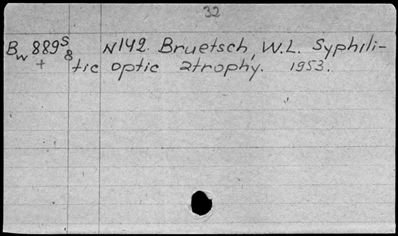 32
Bw 889 S8 N142 Bruetsch, W.L. Syphili-
+ tic optic atrophy. 1953.